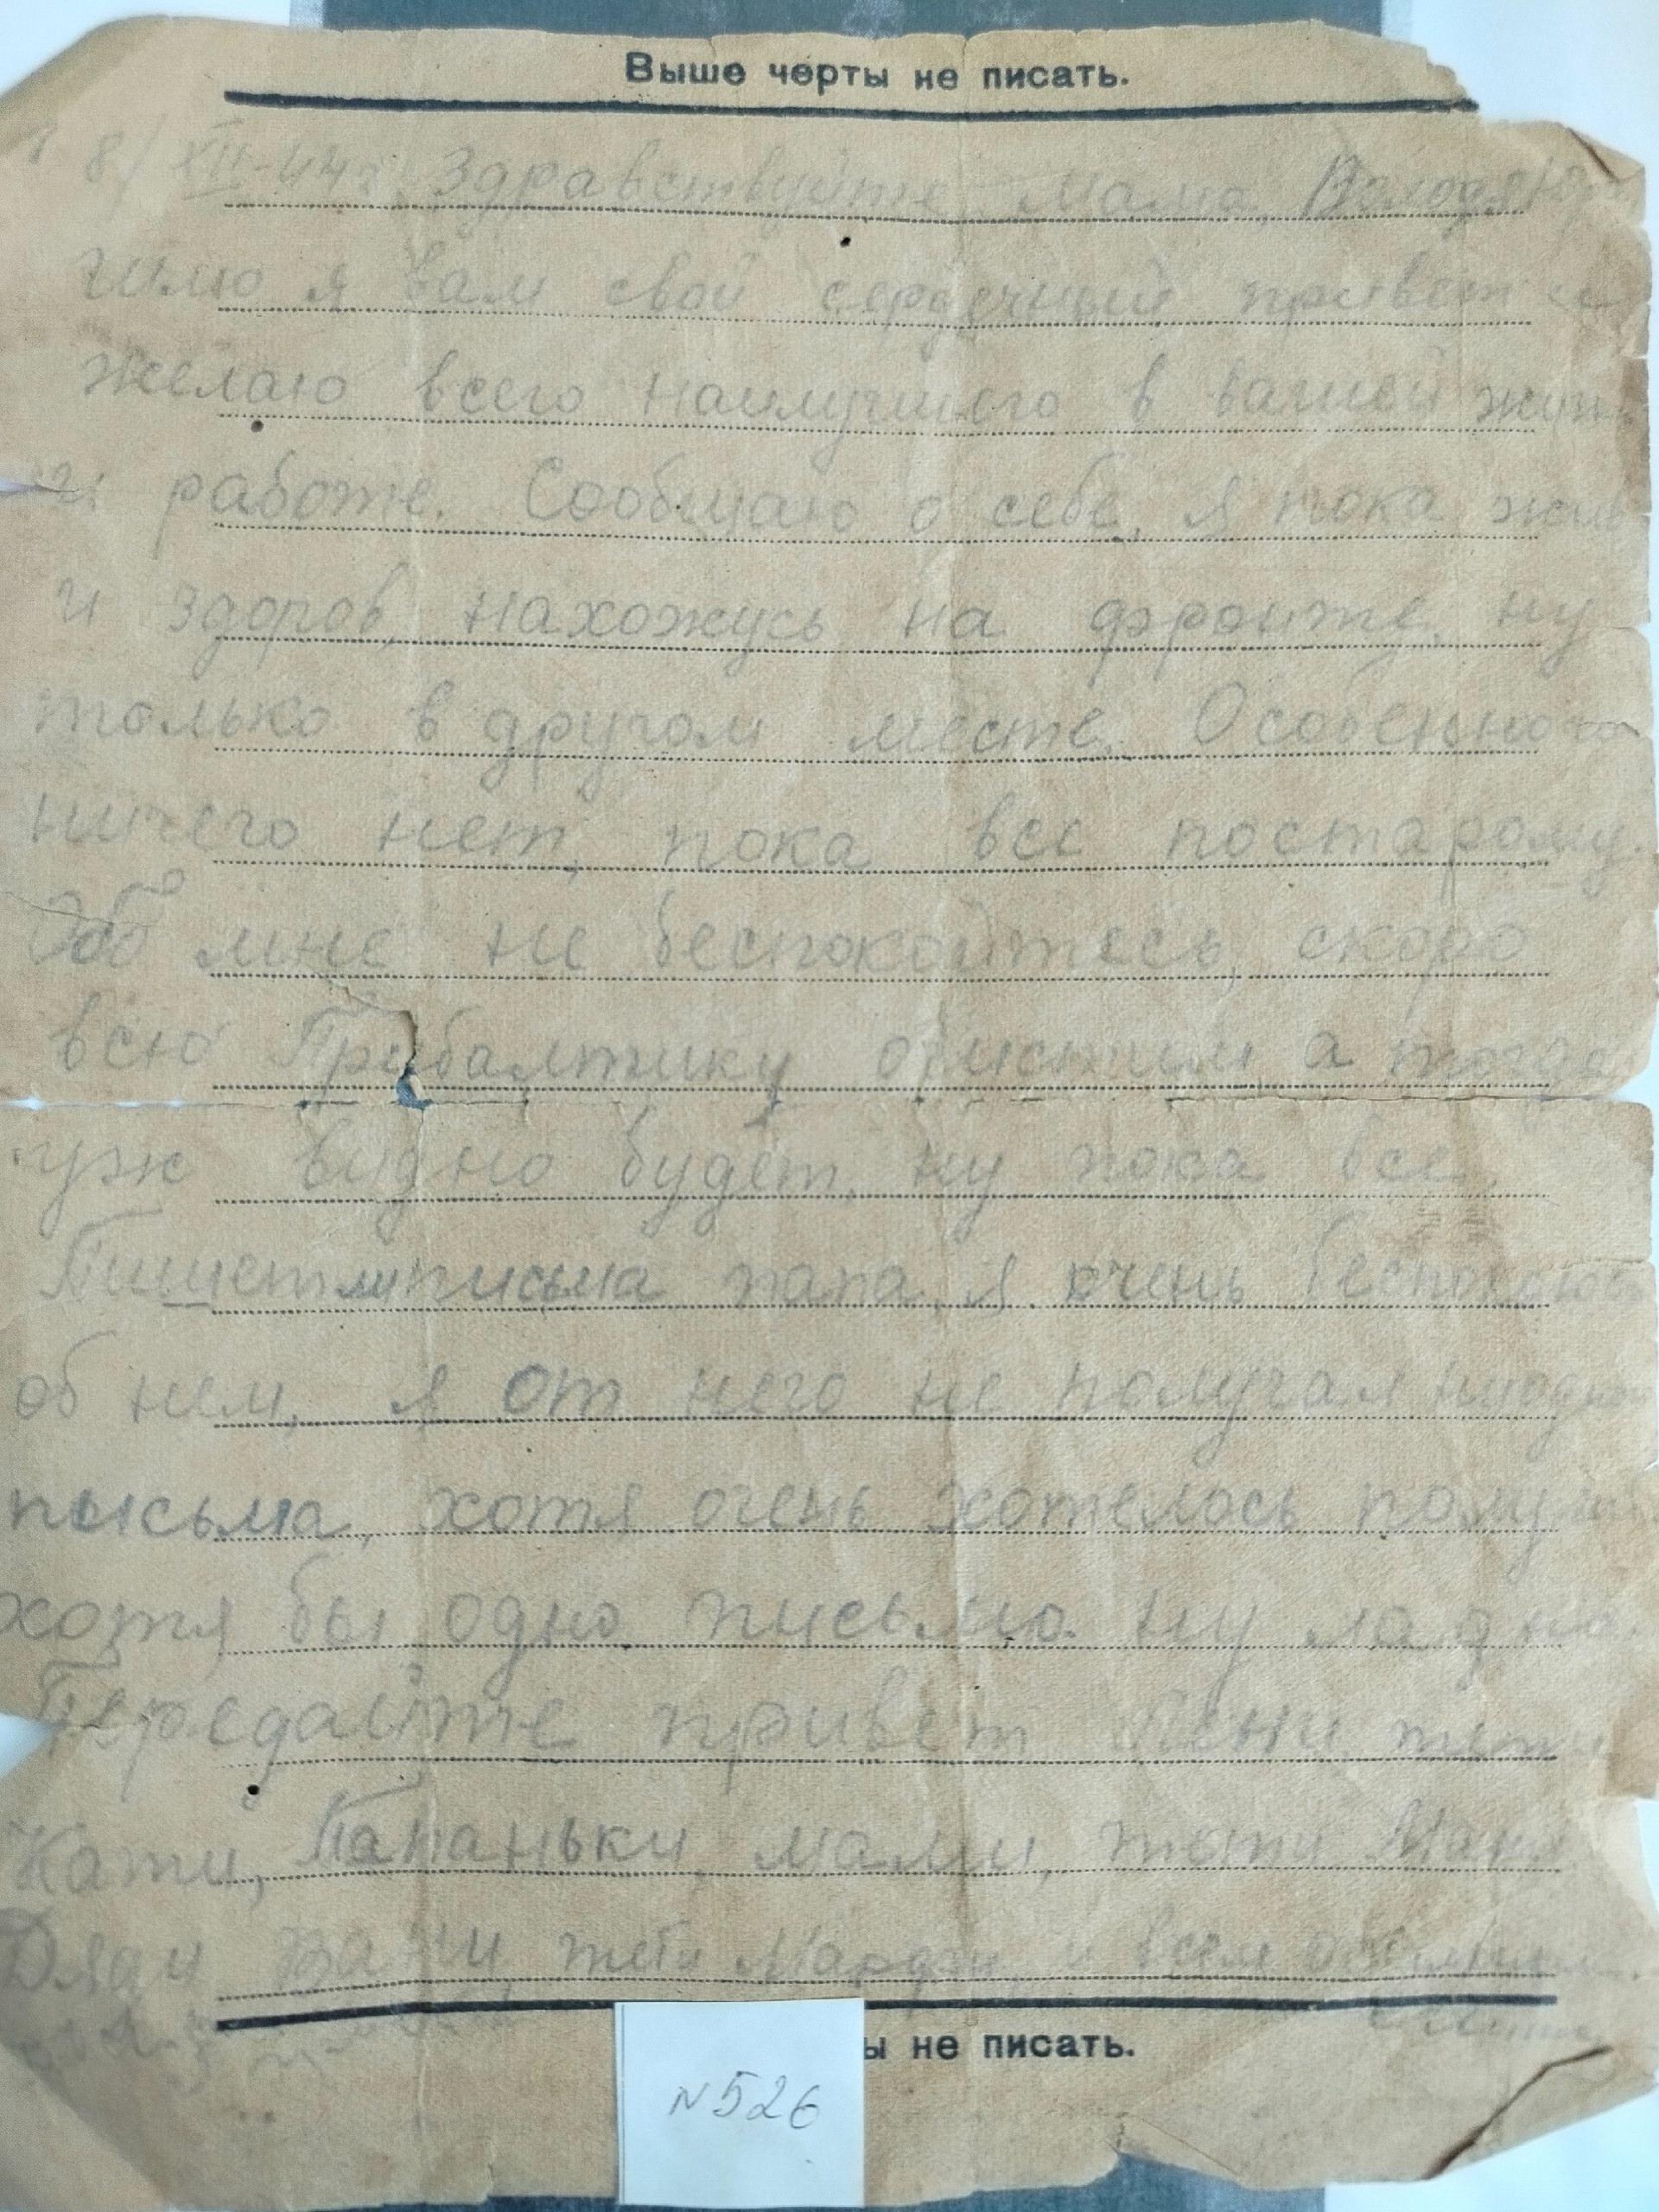 Выше черты не писать.
8/XII-44г. Здравствуйте мама, Володя
шлю я вам свой сердечный привет и
желаю всего наилучшего в вашей
и работе. Сообщаю о себе, я пока жив
и здоров, нахожусь на фронте, ну
только в другом месте. Особенного
ничего нет, пока все постарому.
Обо мне не беспокойтесь, скоро
всю Прибалтику очистим, а тогда
уж видно будет, ну пока все.
Пишет ли письма папа, я очень беспокоюсь
об нем, я от него не получал
письма, хотя очень хотелось
хотя бы одно письмо. ну ладно.
Передайте привет Лени
Кати, Папаньки, мами, тети Мани
Дяди Вани, тети и всем
ы не писать.
N 526